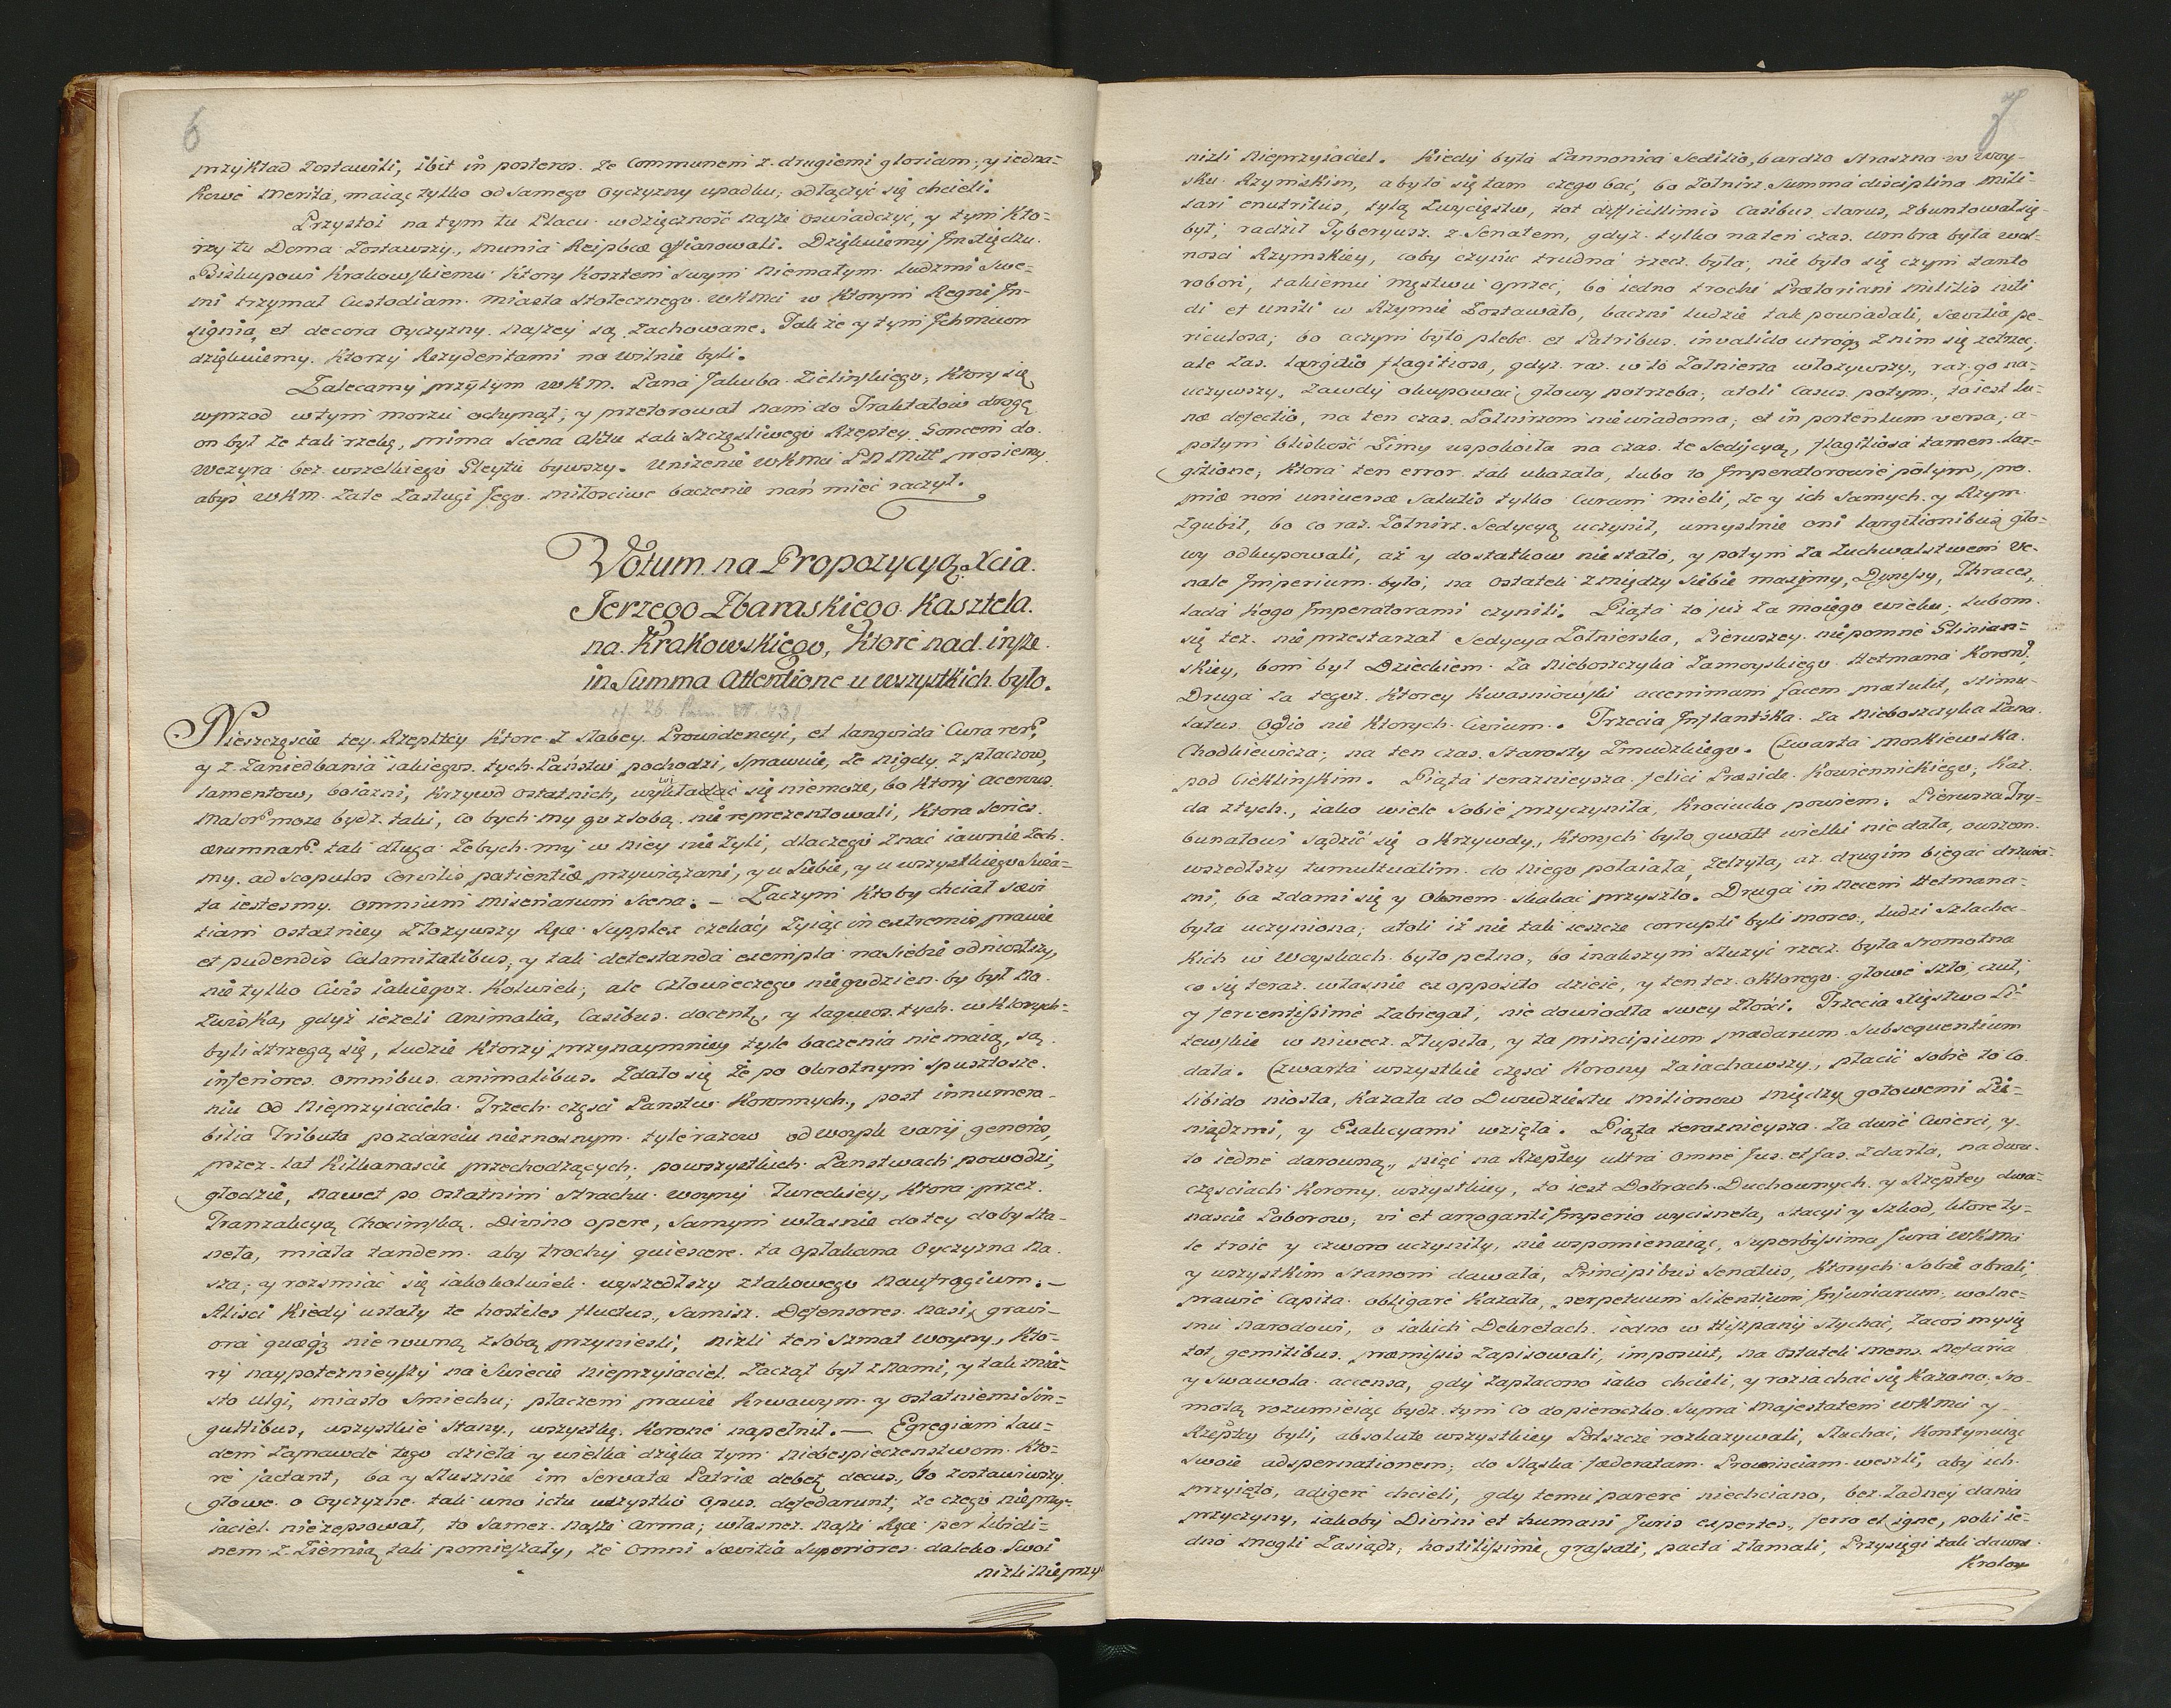 6
przykład zostawili, ibit in posteros. Ze Communem z. drugiemi gloriam, y iedna-
kowe Merita, maiąc tylko od samego Oyczyzny upadku, odłączyć się chcieli.
Przystoi na tym tu Placu wdzięczność naszę oswiadczyć, y tym kto-
rzy tu Doma Zostawszy, munia Reipbcæ offiarowali. Dziękuiemy Jmści Xiędzu
Biskupowi Krakowskiemu ktory kosztem swym niemałym ludzmi swe-
mi trzymał Custodiam miasta stołecznego WKMci w ktorym Regni In-
signia, et decora Oyczyzny naszey są zachowane. Także y tym Jchmciom
dziękuiemy, ktorzy Rezydentami na wilnie byli.
Zalecamy przytym WKM. Pana Jakuba Zielińskiego, ktory się
wprzod wtym morzu ochynął, y przetorował nam do Traktatow drogę
on był że tak rzekę, prima scena aktu tak szczęśliwego Rzeptey. Goncem do
Wezyra bez wszelkiego Gleytu bywszy. Uniżenie WKMci PNMM prosiemy
abyś WKM. za te zasługi Jego miłościwe baczenie nań mieć raczył.
Votum na Propozycyą Xcia.
Jerzego Zbaraskiego Kasztela.
na Krakowskiego, Ktore nad insze
in Summa Attentione u wszystkich było.
Nieszczęscie tey Rzeplttey ktore z słabey Prowidencyi, et languida Cura rer.
y z zaniedbania iakiegos tych Państw pochodzi, sprawuie, że nigdy z płaczow,
lamentow, boiazni, krzywd ostatnich, wywikładać się niemoże, bo ktory acervus
malor może bydz taki, co bychmy go z sobą nie reprezentowali, ktora series
ærumnar tak długa żebychmy w niey nie żyli, dlaczego znać iawnie żech-
my ad scopulos servilis patientiæ przywiązani, y u siebie, y u wszystkiego swia-
ta iestesmy omnium miseriarum scena. – Zaczym ktoby chciał sævi
tiam ostatniey złożywszy ręce supplex czekać, żyiąc in extremis prawie
et pudendis Calamitatibus, y tak detestanda exempla na siebie odniosszy,
nie tylko Civis iakiegoz kolwiek, ale człowieczego niegodzien by był na
zwiska, gdyż ieżeli animalia, Casibus docent, y laqueos tych w ktorych
byli strzegą się, ludzie ktorzy przynaymniey tyle baczenia nie maią, są
inferiores omnibus animalibus. Zdało się że po okrotnym spustosze-
niu od Nieprzyiaciela Trzech części Panstw Koronnych, post innumera-
bilia Tributa po zdarciu nieznosnym tyle razow od woysk varij generis,
przez lat kilkanascie przechodzących, po wszystkich Panstwach powodzi,
głodzie, nawet po ostatnim strachu woyny Tureckiey, ktora przez
Tranzakcyą Chocimską Divino opere, samym własnie do tey doby sta-
neła, miała tandem aby trochy quiescere ta opłakana Oyczyzna na-
sza, y rozsmiać się iakokolwiek wyszedłszy z takowego naufragium. –
Aliści kiedy ustały te hostiles fluctus, samisz Defensores nasi, gravi-
ora quæq nierowną z sobą przyniesli, niżli ten szmat woyny, kto-
ry naypotężnieyszy na Swiecie nieprzyiaciel zaczął był z nami, y tak mia-
sto ulgi, miasto smiechu, płaczem prawie krwawym y ostatniemi Sin-
gultibus, wszystkie Stany, wszystkę Koronę napełnił. – Egregiam lau-
dem zaprawdę tego dzieła y wielka dzięka tym niebespieczenstwom kto-
re jactant, ba y słusznie im servatæ Patriæ debet decus, bo zostawiwszy
głowę o Oyczyzne tak uno ictu wszystko Opus defædarunt, że czego nieprzy-
iaciel niezepsował, to samez nasze arma, własnez nasze ręce per libidi-
nem z ziemią tak pomieszały, że omni sævitia superiores daleko swoi
niżli Nieprzy
7
nizli Nieprzyiaciel. Kiedy była Pannonica Seditio, bardzo straszna w woy-
sku Rzymskim, a było się tam czego bać, bo żołnirz summa disciplina mili-
tari enutritus, tylą zwycięstw, tot difficillimis Casibus clarus, zbuntował się
był, radził Tyberyusz z Senatem, gdyz tylko na ten czas umbra była wol-
nosci Rzymskiey, coby czynić trudna rzecz była, nie było się czym tanto
robori, takiemu męstwu oprzeć, bo iedno trochę Prætoriani militis niti
di et uniti w Rzymie zostawało, baczni ludzie tak powiadali, sævitia pe-
riculosa, bo o czym było plebe et Patribus invalido utroq z nim się zetrzeć,
ale zas largitio flagitiosa, gdyz raz w to żołnierza włozywszy, raz go na-
uczywszy, zawdy okupować głowy potrzeba, atoli Casus potym, to iest lu-
næ defectio, na ten czas żołnirzom niewiadoma, et in portentum versa, a-
potym bliskość zimy uspokoiła na czas te sedycyą, flagitiosa tamen lar-
gitione, ktora ten error tak ukazała, lubo to Jmperatorowie potym, pro-
priæ non universæ salutis tylko Curam mieli, że y ich samych y Rzym
zgubił, bo co raz żołnirz sedycyą uczynił, umyslnie oni largitionibus gło-
wy odkupowali, aż y dostatkow nie stało, y potym za zuchwalstwem ve-
nale Jmperium było, na ostatek z między siebie Maximy, Dyrissy, Thraces,
lada kogo Jmperatorami czynili. Piąta to już za moiego wieku, lubom
się tez nie przestarzał sedycya żołnierska, Pierwszey niepomnę Glinian-
skiey, bom był Dzieckiem za Nieboszczyka Zamoyskiego Hetmana Koronn.
Druga za tegoz ktorey Kwasniowski accerrimam facem prætulit, stimu-
latus odio niektorych Civium. Trzecia Inflantska za Nieboszczyka Pana
Chodkiewicza, na ten czas Starosty Zmudzkiego. Czwarta Moskiewska
pod Cieklińskim. Piąta teraznieysza felici Præside Kowiennickiego, kaz-
da złych, iako wiele sobie przyczyniła, krociucko powiem. Pierwsza Try-
bunałowi sądzić się o krzywdy, ktorych było gwałt wielki nie dała, owszem
wszedłszy tumultuatim do niego połaiała, zelżyła, aż drugim biegać drzwia-
mi, ba zdami się y oknem skakać przyszło. Druga in necem Hetmana
była uczyniona, atoli iż nie tak ieszcze corrupti byli mores, ludzi szlachec-
kich w woyskach było pełno, bo inakszym służyć rzecz była sromotna
co się teraz własnie ex opposito dzieie, y ten tez o ktorego głowę szło, czuł,
y ferventissime zabiegał, nie dowiodła swey złości. Trzecia Xięstwo Li-
tewskie w niwecz złupiła, y ta principium prædarum subsequentium
dała. Czwarta wszystkie części Korony zaiachawszy, płacić sobie to co
libido niosła, kazała do Dwudziestu milionow między gotowemi Pie-
niądzmi, y Exakcyami wzięła. Piąta teraznieysza za dwie Cwierci, y
to iedne darowną, pięć na Rzeptey ultra omne jus et fas zdarła, na dwu
częsciach Korony wszystkiey, to iest Dobrach Duchownych y Rzeptey dwa-
nascie Poborow, vi et arroganti Jmperio wycisneła, stacyi y szkod, ktore ty-
le troie y czworo uczyniły, nie wspomienaiąc, superbissima Jura WKMci
y wszystkim Stanom dawała, Principibus Senatus, ktorych sobie obrali,
prawie Capita obligare kazała, perpetuum silentium Injuriarum wolne-
mu Narodowi, o iakich Dekretach iedno w Hiszpanij słychać, zacoś my się
tot gemitibus præmissis zapisowali, imposuit, na ostatek mens nefaria
y swawola accensa, gdy zapłacono iako chcieli, y roziachać się kazano, sro-
motą rozumieiąc bydz tym co dopieroczko supra Majestatem WKMci y
Rzeptey byli, absolute wszystkiey Polszcze rozkazywali, słuchać, kontynuiąc
swoię adspernationem, do Sląska fæderatam Prowinciam weszli, aby ich
przyięto, adigere chcieli, gdy temu parere niechciano, bez żadney dania
przyczyny, iakoby Divini et humani Juris expertes, ferro et igne, poki ie-
dno mogli zasiądz, hostilissime grassati, pacta złamali, Przysięgi tak dawne
Krolow